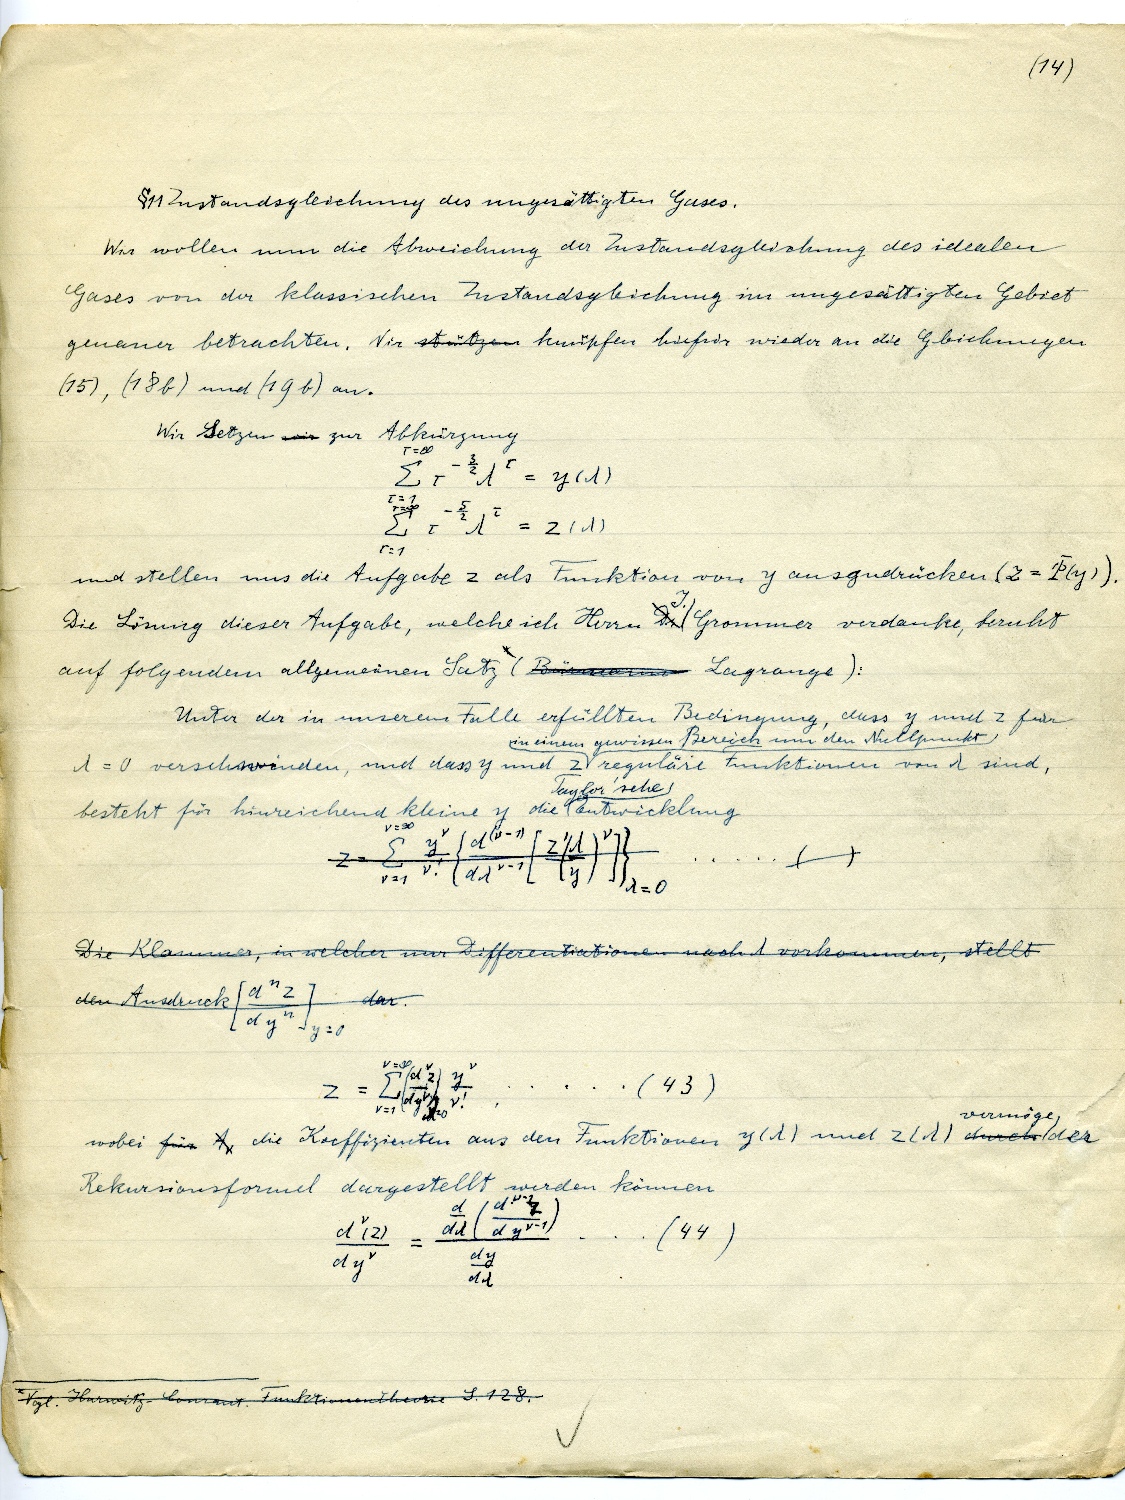 (14)
§11 Zustandsgleichung des ungesättigten Gases.
Wir wollen nun die Abweichung der Zustandsgleichung des idealen
Gases von der klassischen Zustandsgleichung im ungesättigten Gebiet
genauer betrachten. Wir stützen knüpfen hiefür wieder an die Gleichungen
(15), (18b) und (19b) an.
Wir Setzen wir zur Abkürzung
τ=∞
∑ τ^{-3/2} λ^τ = y(λ)
τ=1
τ=∞
∑ τ^{-5/2} λ^τ = z(λ)
τ=1
und stellen uns die Aufgabe z als Funktion von y auszudrücken (z = Φ(y)).
J.
Die Lösung dieser Aufgabe, welche ich Herrn Dr. Grommer verdanke, beruht
auf folgendem allgemeinen Satz* (Bürmann Lagrange):
Unter der in unserem Falle erfüllten Bedingung, dass y und z für
in einem gewissen Bereich um den Nullpunkt
λ = 0 verschwinden, und dass y und z reguläre Funktionen von λ sind,
Taylor'sche
besteht für hinreichend kleine y die Entwicklung
z = ∑_{ν=1}^{ν=∞} y^ν/ν! {d^{(ν-1)}/dλ^{ν-1} [z'(λ/y)^ν]}_{λ=0} . . . . . . ( )
Die Klammer, in welcher nur Differentiationen nach λ vorkommen, stellt
den Ausdruck [d^n z/dy^n]_{y=0} dar.
z = ∑_{ν=1}^{ν=∞} (d^ν z/dy^ν)_{λ=0} y^ν/ν! . . . . . . (43)
vermöge
wobei für A_ν die Koeffizienten aus den Funktionen y(λ) und z(λ) durch der
Rekursionsformel dargestellt werden können
d^ν(z)/dy^ν = d/dλ (d^{ν-1}z/dy^{ν-1}) / (dy/dλ) . . . . (44)
*Vgl. Hurwitz-Courant. Funktionentheorie S. 128.